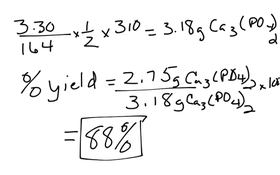 3.30/164 × 1/2 × 310 = 3.18g Ca₃(PO₄)₂
% yield = 2.75g Ca₃(PO₄)₂ / 3.18g Ca₃(PO₄)₂ × 100
= 88%